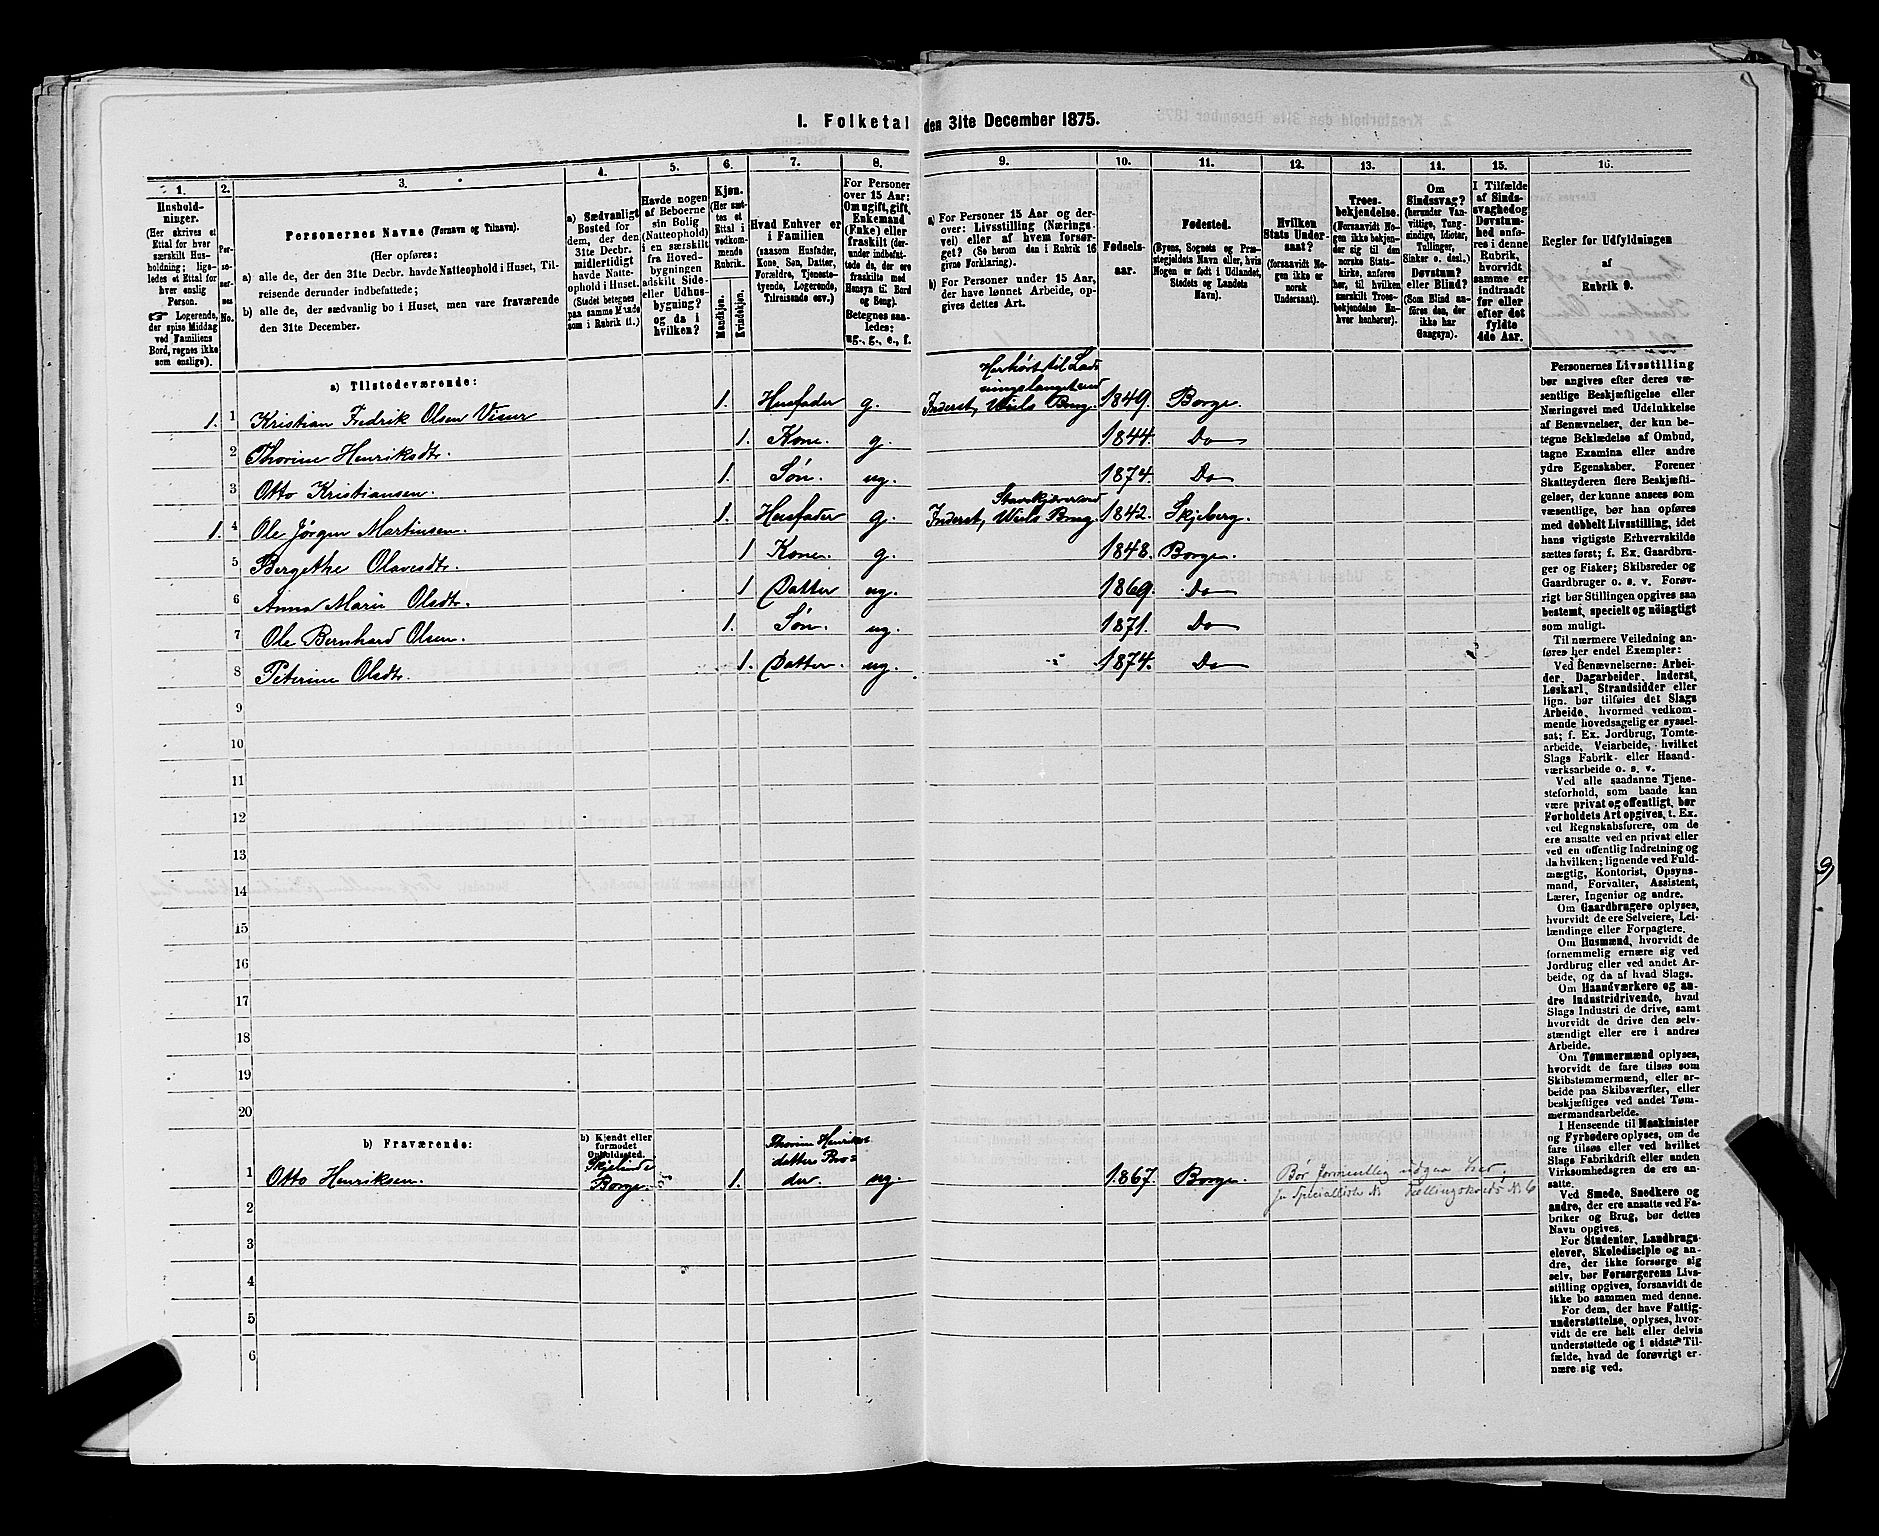 I. Folketal den 31te December 1875.
1. 2. 3. 4. 5. 6. 7. 8. 9. 10. 11. 12. 13. 14. 15. 16.
Husholdninger.
(Her skrives et
Ettal for hver
særskilt Husholdning;
ligeledes et Ettal for
hver enslig
Person.
☞ Logerende,
der spise Middag
ved Familiens
Bord, regnes ikke
som enslige).
Personernes No.
Personernes Navne (Fornavn og Tilnavn).
(Her opføres:
a) alle de, der den 31te Decbr. havde Natteophold i Huset, Tilreisende derunder indbefattede;
b) alle de, der sædvanlig bo i Huset, men vare fraværende
den 31te December.
a) Sædvanligt
Bosted for
dem, der den
31te Decbr.
midlertidigt
havde Natteophold
i Huset.
(Stedet betegnes
paa samme Maade
som i Rubrik 11.)
Havde nogen
af Beboerne
sin Bolig
(Natteophold)
i en særskilt
fra Hovedbygningen
adskilt Side-
eller Udhusbygning?
og da i
hvilken?
Kjøn.
(Her sættes et
Ettal i
vedkommende
Rubrik.
Mandkjøn.
Kvindekjøn.
Hvad Enhver er
i Familien
(saasom Husfader,
Kone, Søn, Datter,
Forældre, Tjenestetyende,
Logerende,
Tilreisende osv.)
For Personer
over 15 Aar:
Om ugift, gift,
Enkemand
(Enke) eller
fraskilt (derunder indbefattede
da, der ere
fraskilte med
Hensyn til Bord
og Seng).
Betegnes saaledes:
ug., g., e., f.
a) For Personer 15 Aar og derover: Livsstilling (Næringsvei) eller af hvem forsørget? (Se herom den i Rubrik 16
givne Forklaring).
b) For Personer under 15 Aar,
der have lønnet Arbeide, opgives dettes Art.
Fødselsaar.
Fødested.
(Byens, Sognets og Præstegjeldets Navn eller, hvis
Nogen er født i Udlandet,
Stedets og Landets
Navn).
Hvilken
Stats Undersaat?
(forsaavidt Nogen ikke er
norsk
Undersaat).
Troesbekjendelse.
(Forsaavidt Nogen ikke bekjender sig til den
norske Statskirke, anføres
her, til hvilken
særskilt Troesbekjendelse Enhver henhører).
Om
Sindssvag?
(herunder Vanvittige, Tungsindige, Idioter,
Tullinger,
Sinker o. desl.)
Døvstum?
eller Blind?
(Som Blind anføres den, der
ikke har
Gangsyn).
I Tilfælde
af Sindssvaghed og
Døvstumhed
anføres
i denne
Rubrik,
hvorvidt
samme er
indtraadt
før eller
efter det
fyldte
4de Aar.
Regler for Udfyldningen
af
Rubrik 9.
a) Tilstedeværende:
1. 1 Kristian Fredrik Olsen 1. Husfader g. Inderst, 1849. Borge.
2 Thorine Henriksdtr. 1. Kone. g. 1844. Do
3 Otto Kristiansen. 1. Søn. ug. 1874. Do
1. 4 Ole Jørgen Martinsen. 1. Husfader g. Inderst, 1842. Skjeberg.
5 Bergethe Olavesdtr. 1 Kone. g. 1848. Borge.
6 Anna Marie Olsdtr. 1 Datter ug. 1869. Do
7 Ole Bernhard Olsen. 1. Søn. ug. 1871. Do
8 Peterine Olsdtr. 1. Datter. ug. 1874. Do
9
10
11
12
13
14
15
16
17
18
19
20
b) Fraværende:
b) Kjendt eller
formodet
Opholdssted.
1 Otto Henriksen. Borge. 1. Thorine Henriksdatters Broder. ug. 1867. Borge.
2
3
4
5
6
Personernes Livsstilling
bør angives efter deres væsentlige Beskjæftigelse eller
Næringsvei med Udelukkelse
af Benævnelser, der kun betegne Beklædelse af Ombud,
tagne Examina eller andre
ydre Egenskaber. Forener
Skatteyderen flere Beskjæftigelser, der kunne ansees som
væsentlige, bør han opføres
med dobbelt Livsstilling, idet
hans vigtigste Erhvervskilde
sættes først; f. Ex. Gaardbruger og Fisker; Skibsreder og
Gaardbruger o. s. v. Forøvrigt bør Stillingen opgives saa
bestemt, specielt og nøiagtigt
som muligt.
Til nærmere Veiledning anføres her endel Exempler:
Ved Benævnelserne: Arbeider, Dagarbeider, Inderst,
Løskarl, Strandsidder eller
lign. bør tilføies det Slags
Arbeide, hvormed vedkommende hovedsagelig er sysselsat; f. Ex. Jordbrug, Tomtearbeide, Veiarbeide, hvilket
Slags Fabrik- eller Haandværksarbeide o. s. v.
Ved alle saadanne Tjenesteforhold, som baade kan
være privat og offentligt, bør
Forholdets Art opgives, t. Ex.
ved Regnskabsførere, om de
ere ansatte ved en privat eller
ved en offentlig Indretning og
da hvilken; lignende ved Fuldmægtig, Kontorist, Opsynsmand, Forvalter, Assistent,
Lærer, Ingeniør og andre.
Om Gaardbrugere oplyses,
hvorvidt de ere Selveiere, Leilændinge eller Forpagtere.
Om Husmænd, hvorvidt de
fornemmelig ernære sig ved
Jordbrug eller ved andet Arbeide, og da af hvad Slags.
Om Haandværkere og andre Industridrivende, hvad
Slags Industri de drive, samt
hvorvidt de drive den selvstændigt eller ere i andres
Arbeide.
Om Tømmermænd oplyses,
hvorvidt de fare tilsøs som
Skibstømmermænd, eller arbeide paa Skibsværfter, eller
beskjæftiges ved andet Tømmermandsarbeide.
I Henseende til Maskinister
og Fyrbødere oplyses, om de
fare tilsøs eller ved hvilket
Slags Fabrikdrift eller anden
Virksomhedsgren de ere ansatte.
Ved Smede, Snedkere og
andre, der ere ansatte ved Fabriker og Brug, bør dettes
Navn opgives.
For Studenter, Landbrugselever, Skoledisciple og andre, der ikke forsørge sig
selv, bør Forsørgerens Livsstilling opgives, forsaavidt de
ikke bo sammen med denne.
For dem, der have Fattigunderstøttelse, oplyses, hvorvidt de ere helt eller delvis
understøttede og i sidste Tilfælde, hvad de forøvrigt ernære sig ved.